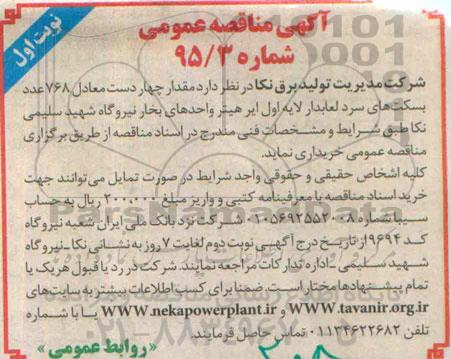 نوبت اول
آگهی مناقصه عمومی
شماره ۹۵/۳
شرکت مدیریت تولید برق نکا در نظر دارد مقدار چهار دست معادل ۷۶۸ عدد
بسکت‌های سرد لعابدار لایه اول ایر هیتر واحدهای بخار نیروگاه شهید سلیمی
نکا طبق شرایط و مشخصات فنی مندرج در اسناد مناقصه از طریق برگزاری
مناقصه عمومی خریداری نماید.
کلیه اشخاص حقیقی و حقوقی واجد شرایط در صورت تمایل می‌توانند جهت
خرید اسناد مناقصه با معرفینامه کتبی و واریز مبلغ ۲۰۰،۰۰۰ ریال به حساب
سیبا شماره نزد بانک ملی ایران شعبه نیروگاه
کد ۹۶۹۴ از تاریخ درج آگهی نوبت دوم لغایت ۷ روز به نشانی نکا-نیروگاه
شهید سلیمی-اداره تدارکات مراجعه نمایند. شرکت در رد یا قبول هر یک یا
تمام پیشنهادها مختار است. ضمنا برای کسب اطلاعات بیشتر به سایت‌های
WWW.tavanir.org.ir و WWW.nekapowerplant.ir و یا با شماره
تلفن ۰۱۱۳۴۶۲۲۶۸۲ تماس حاصل فرمایند.
«روابط عمومی»